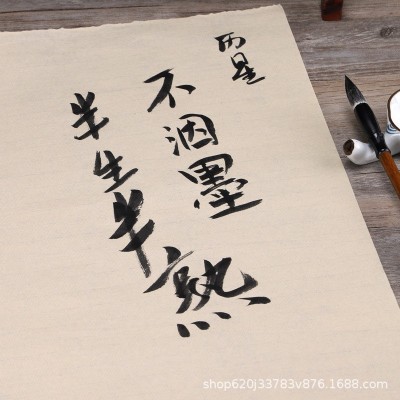 星
不洇墨
半生半熟
shop620j33783v876.1688.com